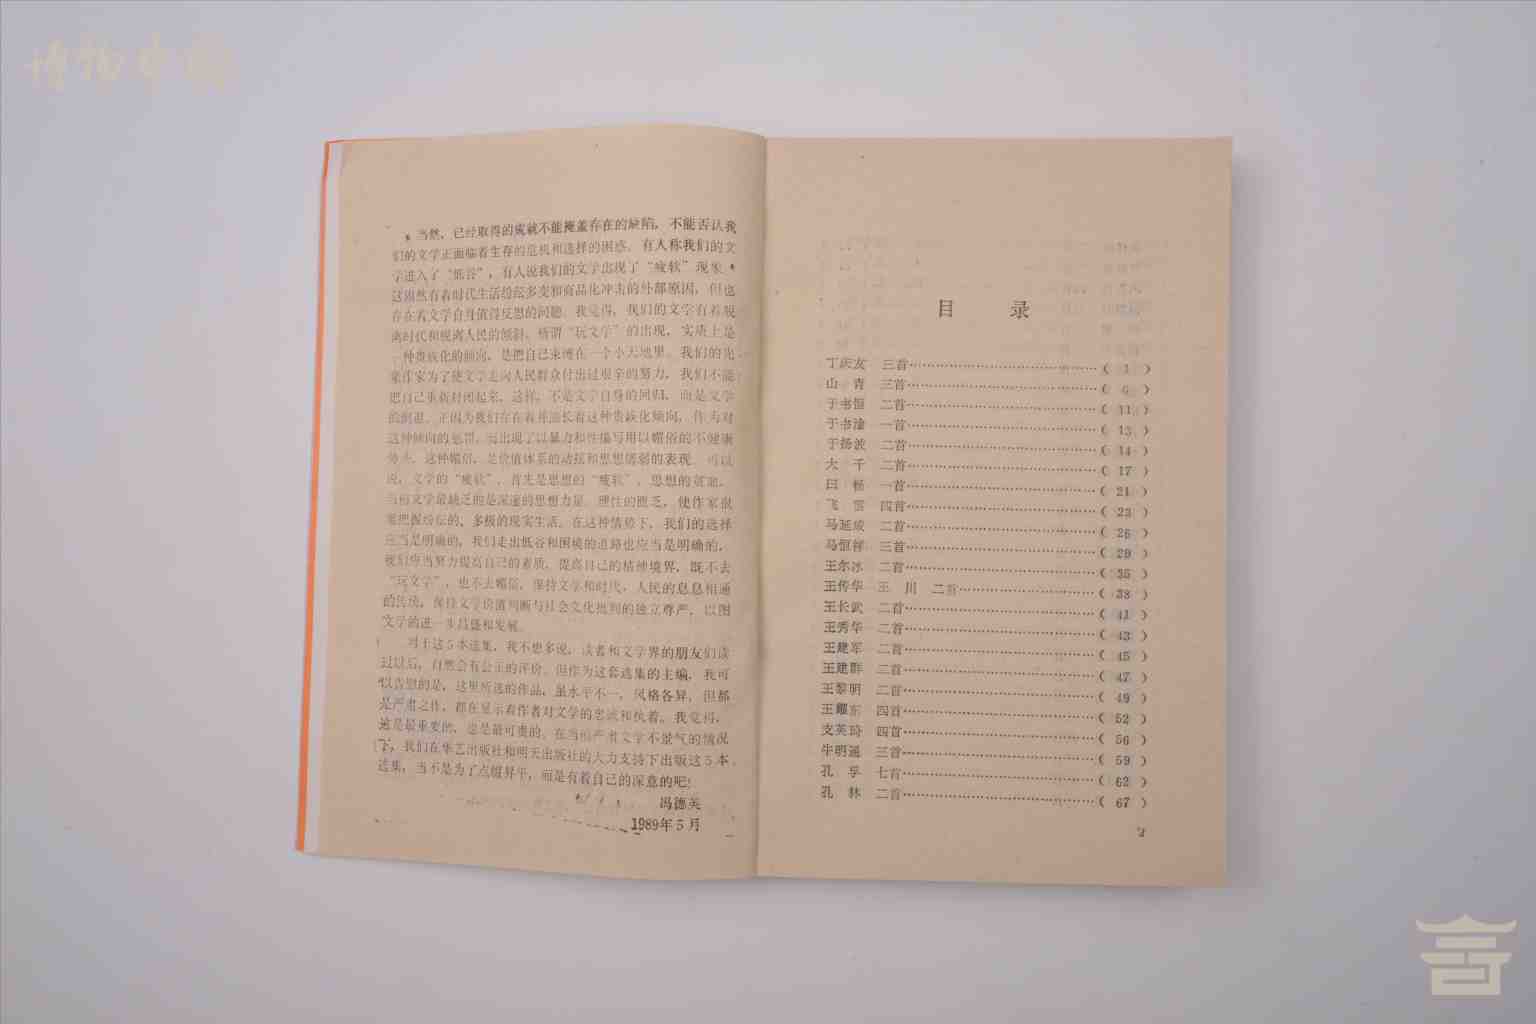 当然，已经取得的成就不能掩盖存在的缺陷，不能否认我
们的文学正面临着生存的危机和选择的困惑。有人称我们的文
学进入了“低谷”，有人说我们的文学出现了“疲软”现象。
这固然有着时代生活纷纭多变和商品化冲击的外部原因，但也
存在着文学自身值得反思的问题。我觉得，我们的文学有着脱
离时代和脱离人民的倾斜。所谓“玩文学”的出现，实质上是
一种贵族化的倾向，是把自己束缚在一个小天地里。我们的先
辈作家为了使文学走向人民群众付出过艰辛的努力，我们不能
把自己重新封闭起来，这样，不是文学自身的回归，而是文学
的倒退。正因为我们存在着并滋长着这种贵族化倾向，作为对
这种倾向的惩罚，而出现了以暴力和性描写用以媚俗的不健康
势头。这种媚俗，是价值体系的动摇和思想孱弱的表现。可以
说，文学的“疲软”，首先是思想的“疲软”，思想的贫血。
当前文学最缺乏的是深邃的思想力量。理性的匮乏，使作家很
难把握纷纭的、多极的现实生活。在这种情势下，我们的选择
应当是明确的，我们走出低谷和困境的道路也应当是明确的，
我们应当努力提高自己的素质，提高自己的精神境界，既不去
“玩文学”，也不去媚俗，保持文学和时代、人民的息息相通
的传统，保持文学价值判断与社会文化批判的独立尊严，以图
文学的进一步昌盛和发展。
对于这5本选集，我不想多说，读者和文学界的朋友们读
过以后，自然会有公正的评价。但作为这套选集的主编，我可
以告慰的是，这里所选的作品，虽水平不一，风格各异，但都
是严肃之作，都在显示着作者对文学的忠诚和执着。我觉得，
这是最重要的，也是最可贵的。在当前严肃文学不景气的情况
下，我们在华艺出版社和明天出版社的大力支持下出版这5本
选集，当不是为了点缀昇平，而是有着自己的深意的吧！
冯德英
1989年5月
目 录
丁庆友 三首……（ 1 ）
山 青 三首……（ 6 ）
于书恒 二首……（ 11 ）
于书淦 一首……（ 13 ）
于扬波 二首……（ 14 ）
大 千 二首……（ 17 ）
曰 杨 一首……（ 21 ）
飞 雪 四首……（ 23 ）
马延成 二首……（ 26 ）
马恒祥 三首……（ 29 ）
王尔冰 二首……（ 35 ）
王传华 王 川 二首……（ 38 ）
王长武 二首……（ 41 ）
王秀华 二首……（ 43 ）
王建军 二首……（ 45 ）
王建群 三首……（ 47 ）
王黎明 二首……（ 49 ）
王耀东 四首……（ 52 ）
支英琦 四首……（ 56 ）
牛明通 三首……（ 59 ）
孔 孚 七首……（ 62 ）
孔 林 二首……（ 67 ）
博物中国